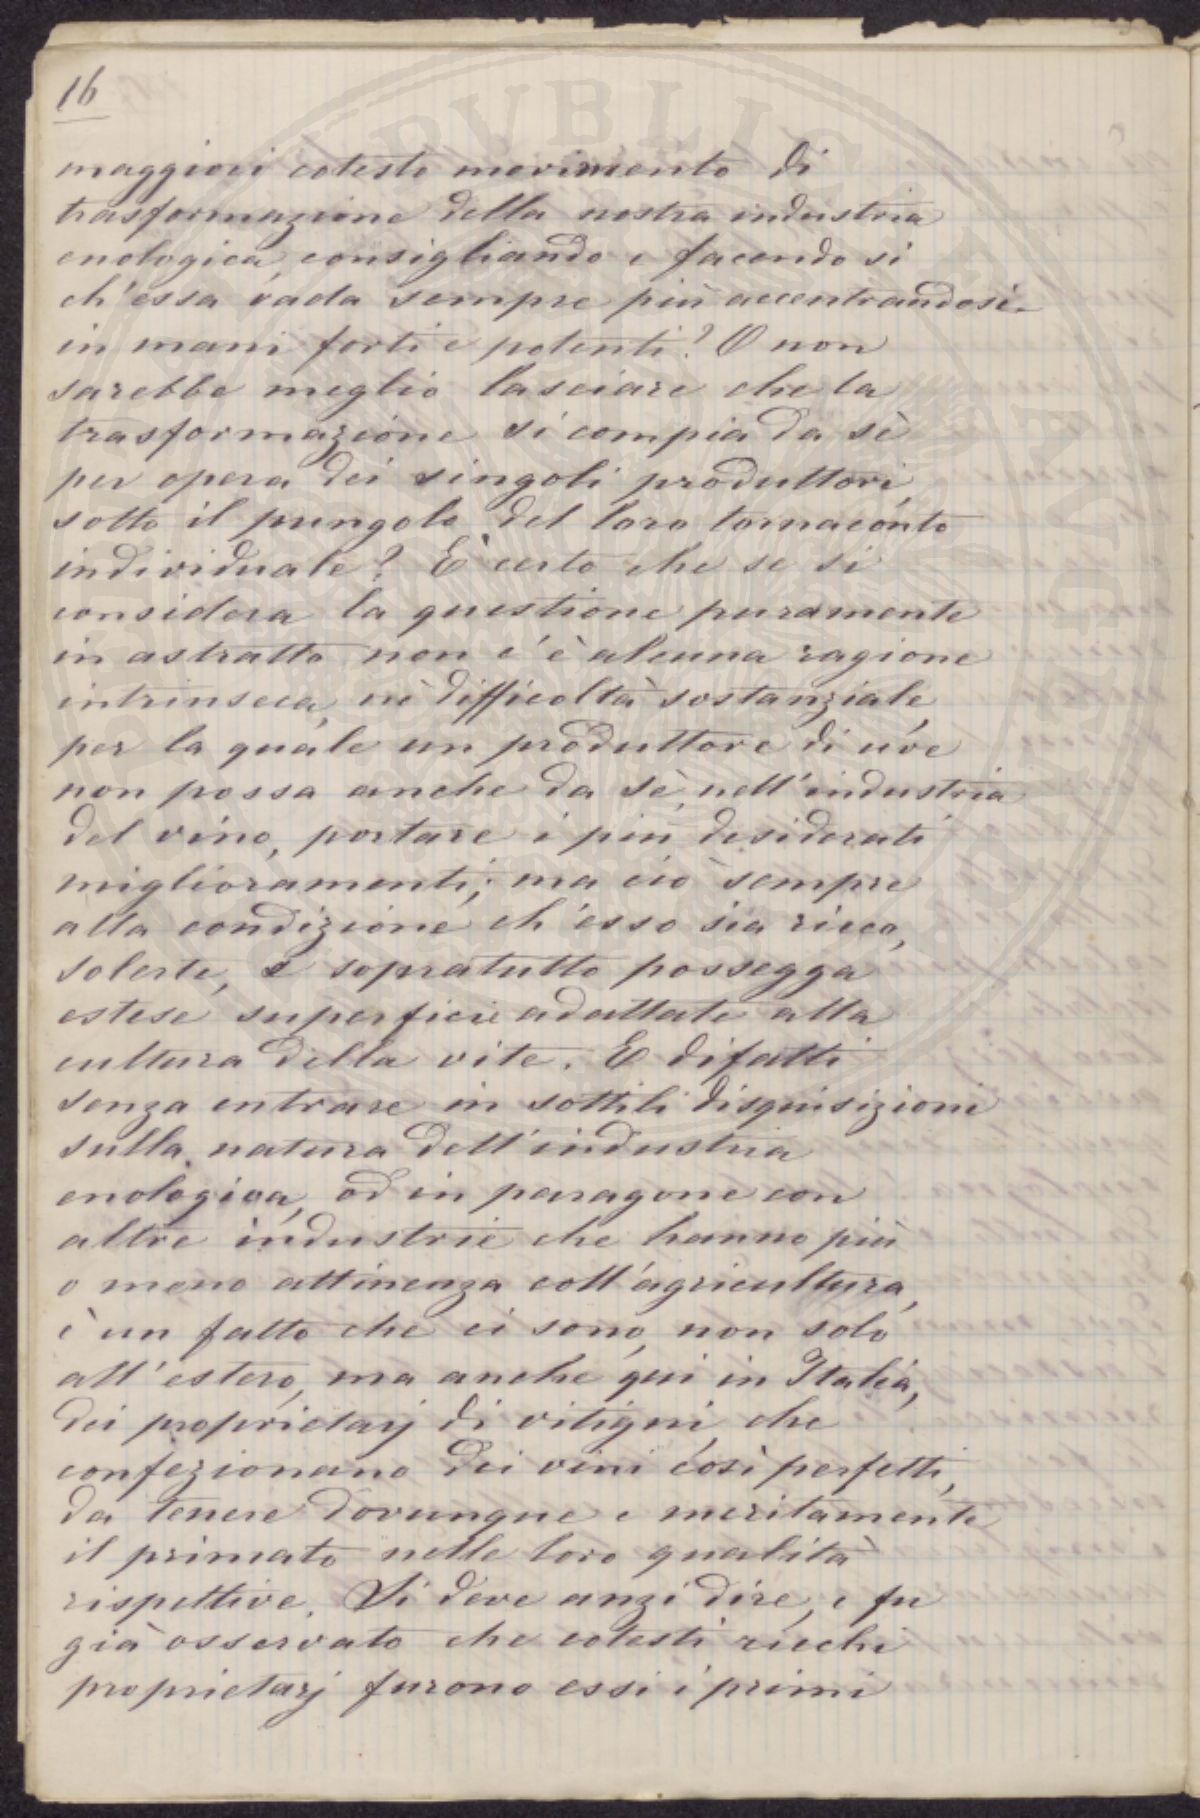 16
maggiori cotesto movimento di
trasformazione della nostra industria
enologica, consigliando e facendo si
ch'essa vada sempre più accentrandosi
in mani forti e potenti? O non
sarebbe meglio lasciare che la
trasformazione si compia da sè
per opera dei singoli produttori,
sotto il pungolo del loro tornaconto
individuale? È certo che se si
considera la questione puramente
in astratto non c'è alcuna ragione
intrinseca, nè difficoltà sostanziale,
per la quale un produttore di uve
non possa anche da sè, nell'industria
del vino, portare i più desiderati
miglioramenti; ma ciò sempre
alla condizione ch'esso sia ricco,
solerte, e sopratutto possegga
estese superficie adattate alla
cultura della vite. E difatti
senza entrare in sottili disquisizioni
sulla natura dell'industria
enologica, od in paragone con
altre industrie che hanno più
o meno attinenza coll'agricultura,
è un fatto che ci sono, non solo
all'estero, ma anche qui in Italia,
dei proprietarj di vitigni, che
confezionano dei vini così perfetti,
da tenere dovunque e meritamente
il primato nelle loro qualità
rispettive. Si deve anzi dire, e fu
già osservato che cotesti ricchi
proprietarj furono essi i primi
PVBLIC